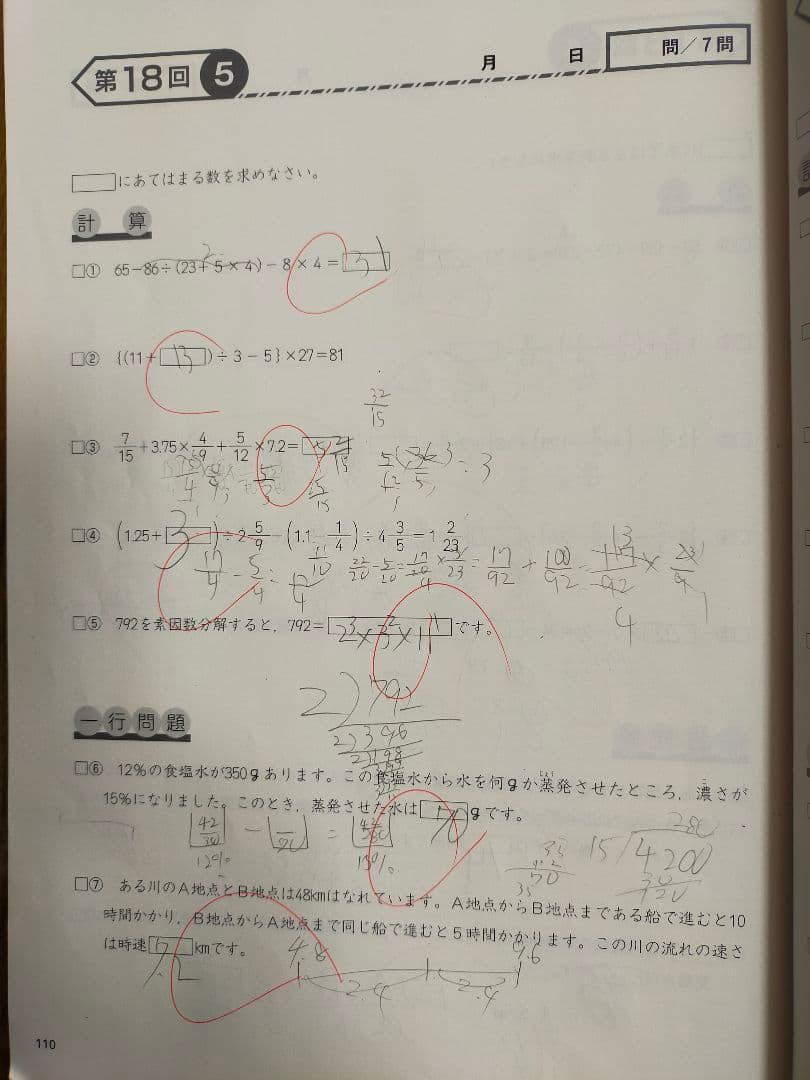 第18回 5 月 日 問/7問
□にあてはまる数を求めなさい。
計算
□① 65-86÷(23+5×4)-8×4=31
2
□② {(11+13)÷3-5}×27=81
32/15
□③ 7/15+3.75×4/9+5/12×7.2=
□④ (1.25+3)÷2 5/9-(1.1-1/4)÷4 3/5=1 2/23
17/4 - 5/4 = 12/4
22/20 - 5/20 = 17/20 × 5/23 = 17/92 + 100/92 =
□⑤ 792を素因数分解すると，792=2³×3²×11です。
2)792
2)396
2)198
一行問題
□⑥ 12%の食塩水が350gあります。この食塩水から水を何gか蒸発させたところ，濃さが
15%になりました。このとき，蒸発させた水は70gです。
12% 15%
280
15)4200
□⑦ ある川のA地点とB地点は48kmはなれています。A地点からB地点まである船で進むと10
時間かかり，B地点からA地点まで同じ船で進むと5時間かかります。この川の流れの速さ
は時速□kmです。
7.2 4.8 9.6
2.4 2.4
110